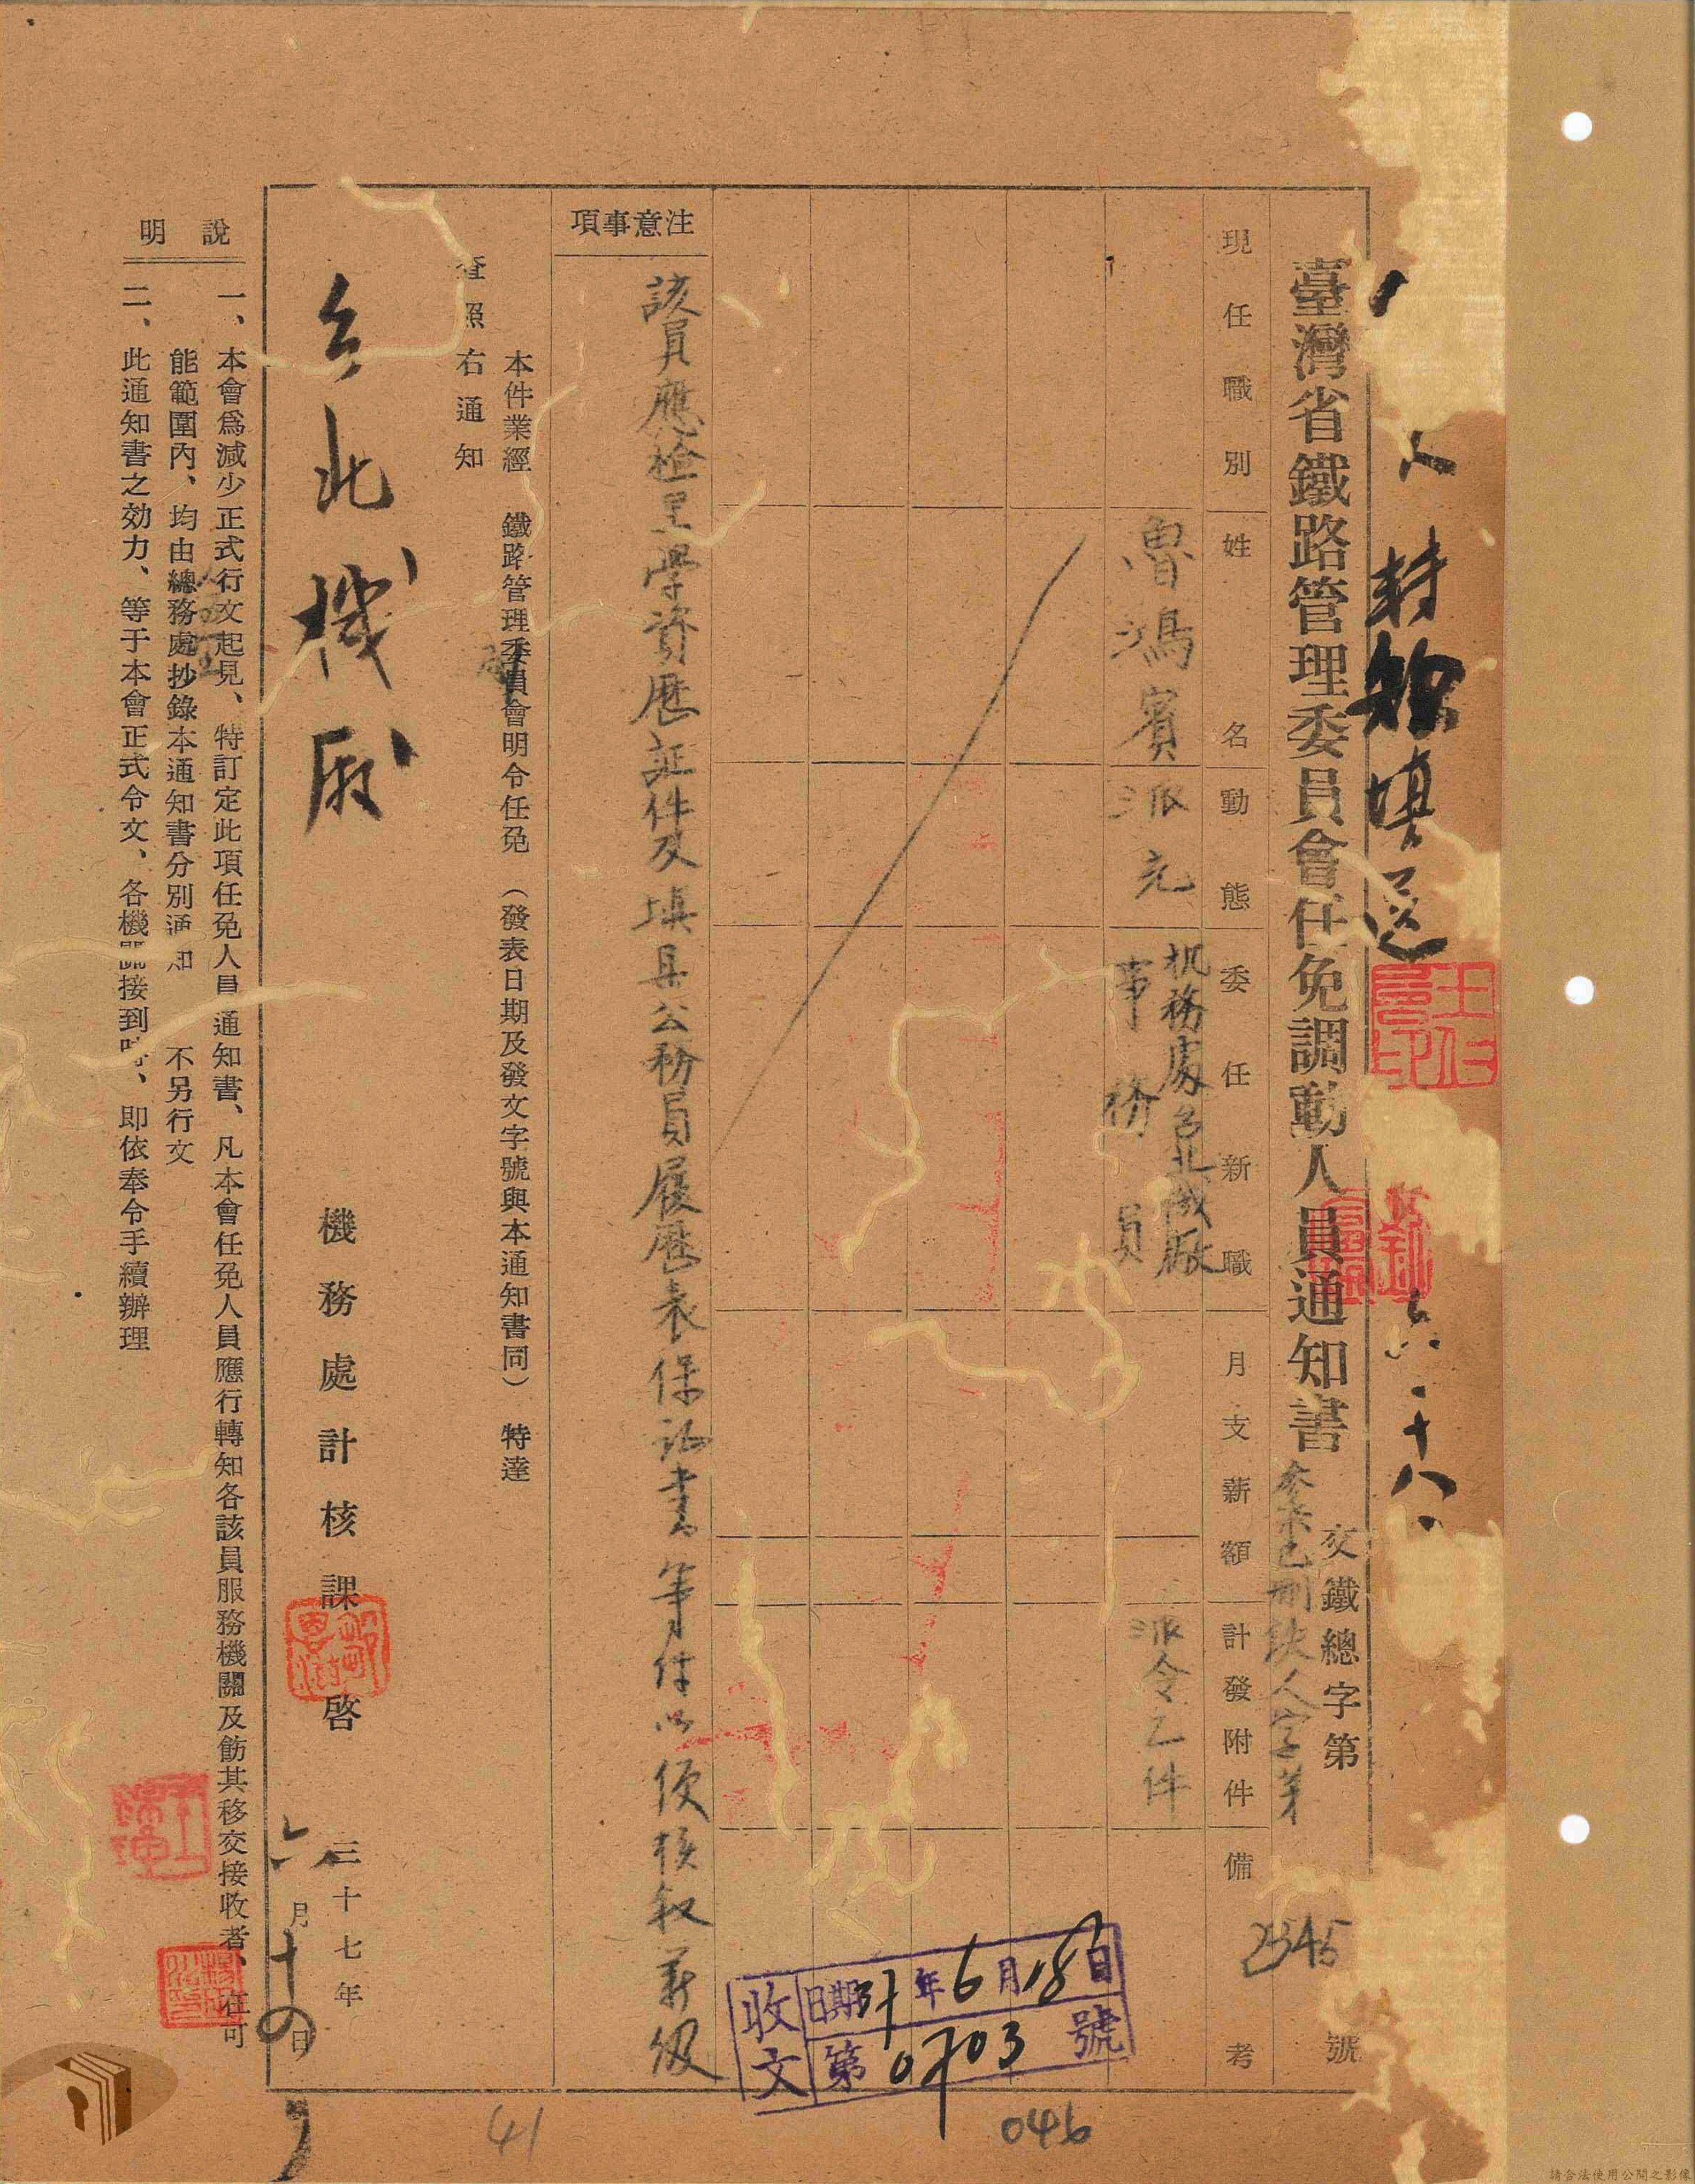 轉飭填送
六、十八、
臺灣省鐵路管理委員會任免調動人員通知書
交鐵總字第
人字第
2345
號
現任職別
姓名
動態
委任新職
月支薪額
計發附件
備考
魯鴻賓
派充
机務處台北機厰
事務員
派令乙件
注意事項
該員應檢呈學資歷証件及填具公務員履歷表保証書等件以便核敍薪級
本件業經 鐵路管理委員會明令任免 (發表日期及發文字號與本通知書同) 特達
查照右通知
台北機厰
機務處計核課啓
三十七年
六月十四日
說明
一、本會爲減少正式行文起見、特訂定此項任免人員通知書、凡本會任免人員應行轉知各該員服務機關及飭其移交接收者、在可
能範圍內、均由總務處抄錄本通知書分別通知 不另行文
二、此通知書之効力、等于本會正式令文、各機關接到時、即依奉令手續辦理
收文
日期37年6月18日
第0703號
41
046
請合法使用公開之影像